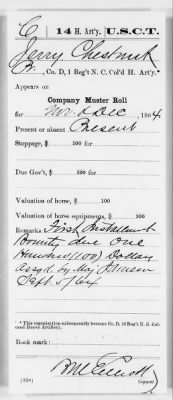 C | 14 H. Art'y. | U.S.C.T.
Jerry Chestnut
Co. D, 1 Reg't N. C. Col'd H. Art'y.*
Appears on
Company Muster Roll
for Nov. & Dec, 1864.
Present or absent Present
Stoppage, $ 100 for
Due Gov't, $ 100 for
Valuation of horse, $ 100
Valuation of horse equipments, $ 100
Remarks First Installment
Bounty due One
Hundred (100) Dollars
by Maj
Sept. 5/64
* This organization subsequently became Co. D, 14 Reg't U. S. Colored Heavy Artillery.
Book mark:
Copyist.